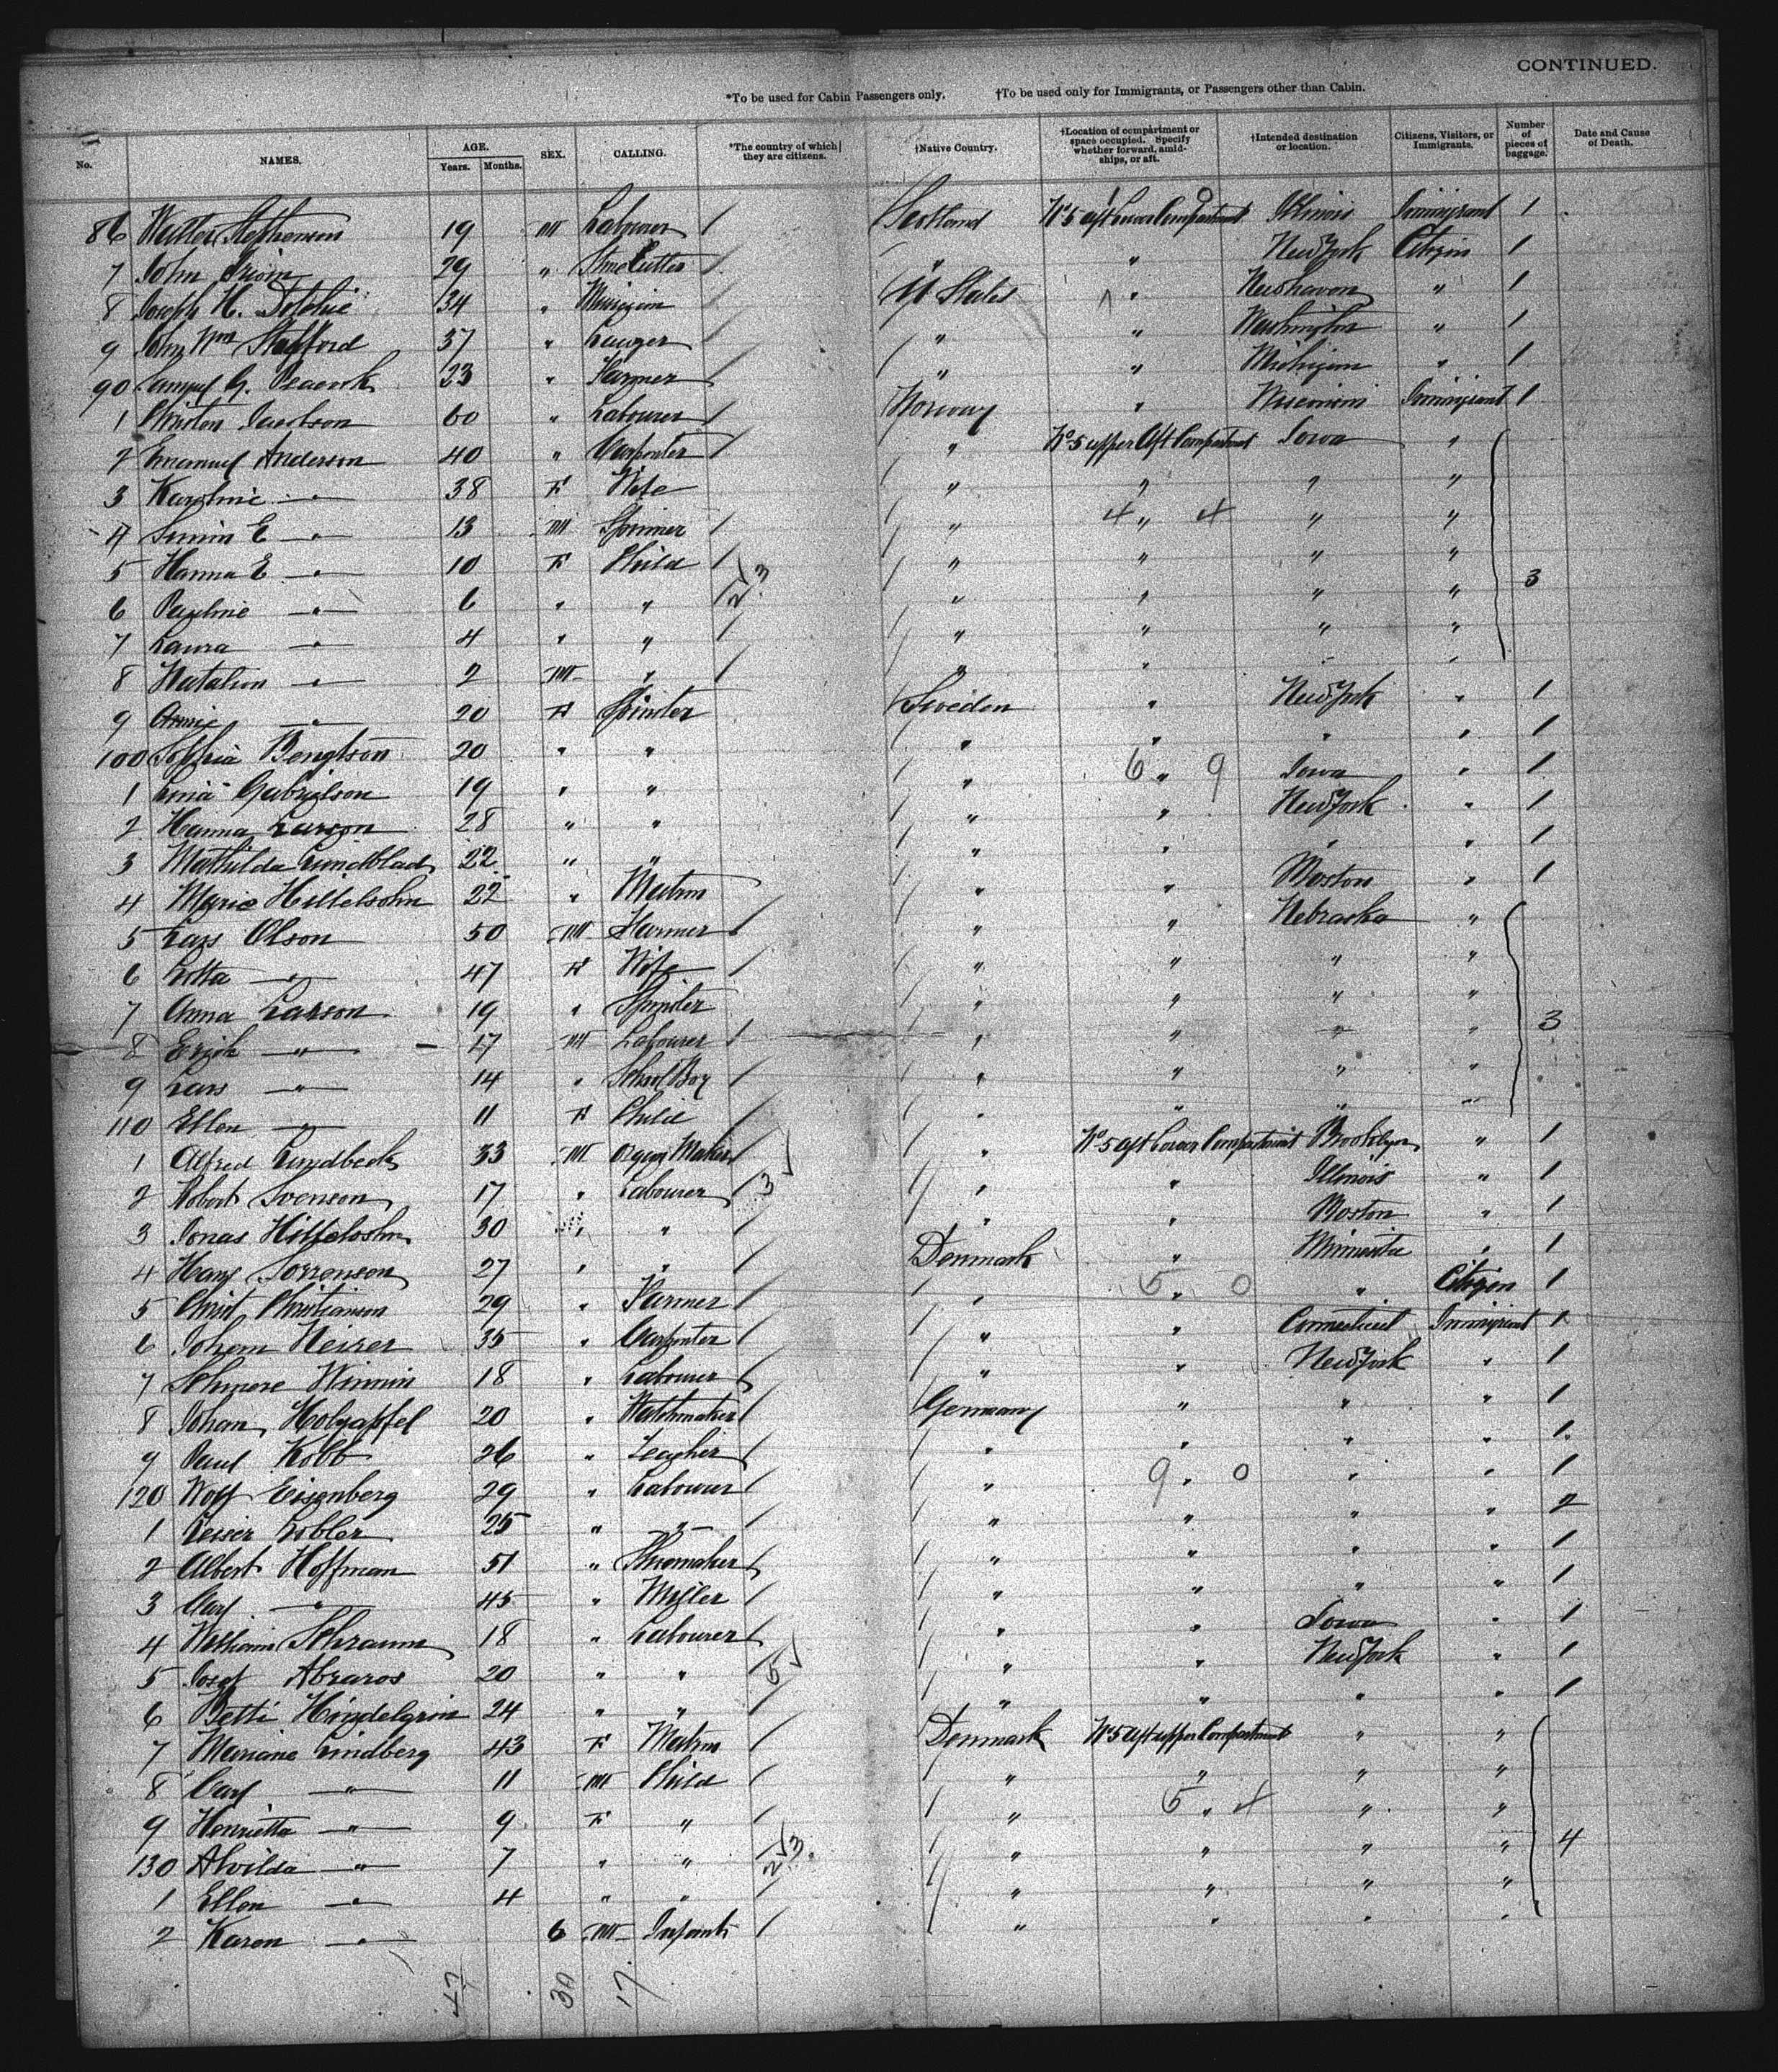 CONTINUED.
*To be used for Cabin Passengers only. †To be used only for Immigrants, or Passengers other than Cabin.
No. NAMES. AGE. Years. Months. SEX. CALLING. *The country of which they are citizens. †Native Country. †Location of compartment or space occupied. Specify whether forward, amidships, or aft. †Intended destination or location. Citizens, Visitors, or Immigrants. Number of pieces of baggage. Date and Cause of Death.
86 Walter Stephenson 19 M Labourer / Scotland No 5 aft Lower Compartment Illinois Immigrant 1
7 John Irwin 29 " Stone Cutter / " " New York Citizen 1
8 Joseph H. 34 " / U States " Newhaven " 1
9 John Wm Stafford 37 " Lawyer / " " Washington " 1
90 Samuel G. Peacock 23 " Farmer / " " Michigan " 1
1 Jacobson 60 " Labourer / Norway " Wisconsin Immigrant 1
2 Emanuel Anderson 40 " Carpenter / " No 5 upper Aft Compartment Iowa "
3 Karoline " 38 F Wife " " " "
4 E " 13 M / " 4 " 4 " "
5 Hanna E " 10 F Child / " " " "
6 Pauline " 6 " " / " " " " 3
7 Laura " 4 " " / " " " "
8 " 2 M " / " " " "
9 Annie " 20 F Spinster Sweden " New York " 1
100 Sophia Bengtson 20 " " " " " " 1
1 Lina Gabrielson 19 " " " 6 " 9 Iowa " 1
2 Hanna Larson 28 " " " " New York " 1
3 Mathilda Lindblad 22 " " " " " " 1
4 Marie 22 " Matron " " Boston " 1
5 Lars Olson 50 M Farmer / " " Nebraska "
6 Lotta " 47 F Wife / " " " "
7 Anna Larson 19 " Spinster " " " "
8 Erick " 17 M Labourer / " " " " 3
9 Lars " 14 " School Boy / " " " "
110 Ellen " 11 F Child / " " " "
1 Alfred Lundbeck 33 M Organ Maker / " No 5 aft Lower Compartment Brooklyn " 1
2 Robert Svenson 17 " Labourer / " " Illinois " 1
3 Jonas 30 " " / " " Boston " 1
4 Hans Sorrenson 27 " " / Denmark " Minnesota " 1
5 Christ Christianson 29 " Farmer / " 5 " 0 " Citizen 1
6 Johan 35 " Carpenter / " " Connecticut Immigrant 1
7 18 " Labourer / " " New York " 1
8 Johan Holzapfel 20 " Watchmaker / Germany " " " 1
9 Paul Kobb 26 " Teacher / " " " " 1
120 Wolf Eisenberg 29 " Labourer / " 9 " 0 " " 1
1 25 " " / " " " " 2
2 Albert Hoffman 51 " Shoemaker / " " " " 1
3 Carl " 45 " Miller / " " " " 1
4 William Schramm 18 " Labourer / " " Iowa " 1
5 20 " " / " " New York " 1
6 Betti 24 " " / " " " " 1
7 Mariane Lindberg 43 F Matron / Denmark No 5 aft upper Compartment " "
8 Carl " 11 M Child / " " " "
9 Henrietta " 9 F " / " 5 " 4 " "
130 Alvilda " 7 " " " " " " 4
1 Ellen " 4 " " / " " " "
2 Karen " 6 M Infant / " " " "
47 30 17